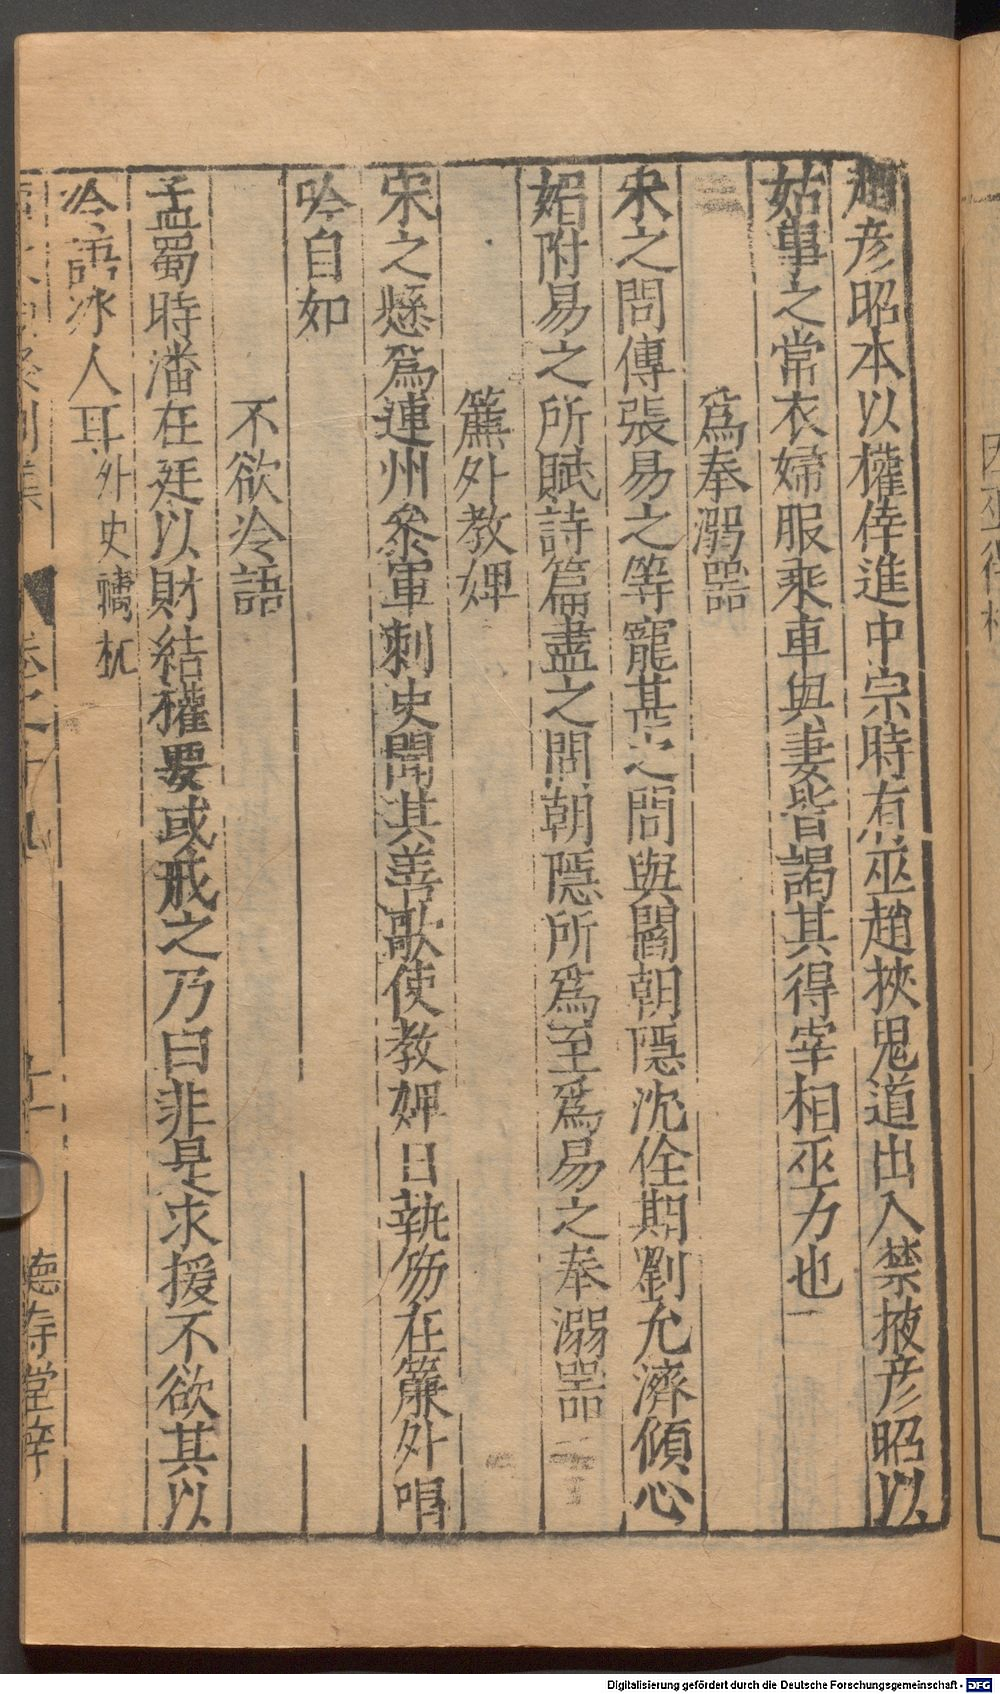 趙彦昭本以權倖進中宗時有巫趙挾鬼道出入禁掖彦昭以
姑事之常衣婦服乘車與妻皆謁其得宰相巫力也
爲奉溺器
宋之問傳張易之等寵甚之問與閻朝隱沈佺期劉允濟傾心
媚附易之所賦詩篇盡之問朝隱所爲至爲易之奉溺器
簾外教婢
宋之愻爲連州叅軍刺史聞其善歌使教婢日執笏在簾外唱
吟自如
不欲冷語
孟蜀時潘在廷以財結權要或戒之乃曰非是求援不欲其以
冷語冰人耳外史檮杌
德壽堂梓
Digitalisierung gefördert durch die Deutsche Forschungsgemeinschaft - DFG